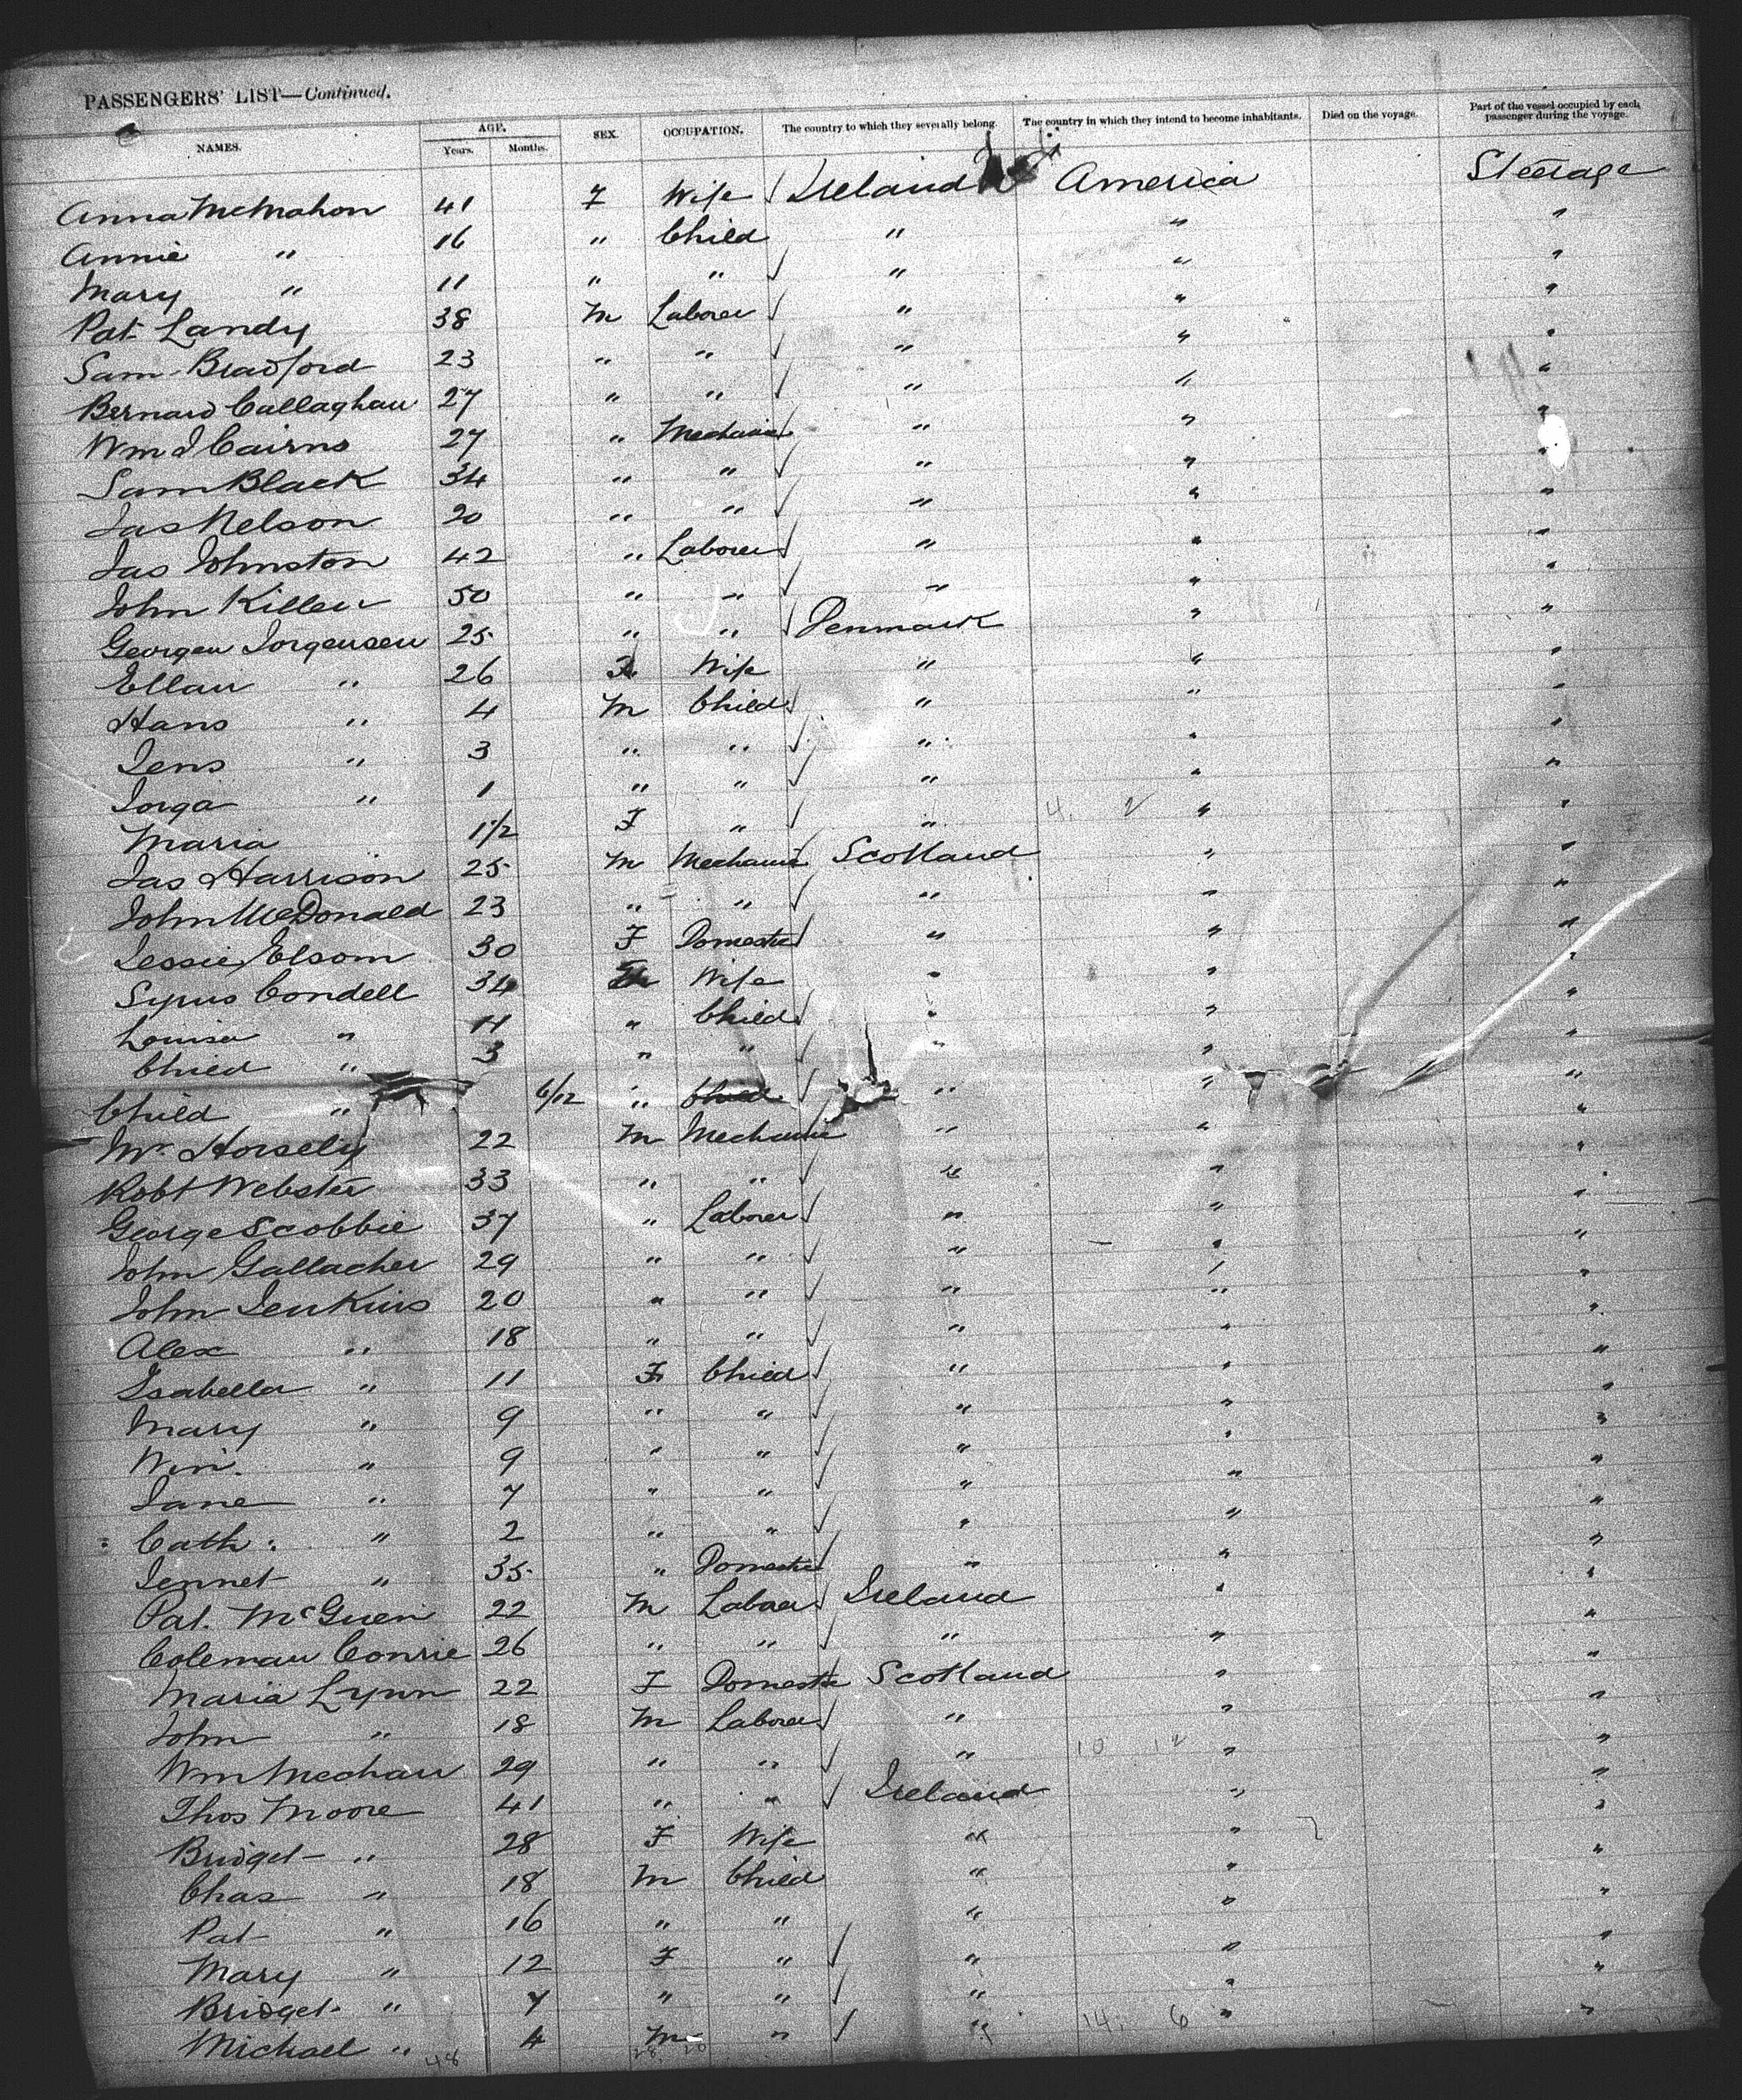 PASSENGERS' LIST—Continued.
NAMES. AGE. Years. Months. SEX. OCCUPATION. The country to which they severally belong. The country in which they intend to become inhabitants. Died on the voyage. Part of the vessel occupied by each passenger during the voyage.
Anna McMahon 41 F Wife Ireland America Steerage
Annie " 16 " Child " " "
Mary " 11 " " " " "
Pat Landy 38 M Laborer " " "
Sam Bradford 23 " " " " "
Bernard Callaghan 27 " " " " "
Wm J Cairns 27 " Mechanic " " "
Sam Black 34 " " " " "
Jas Nelson 20 " " " " "
Jas Johnston 42 " Laborer " " "
John Killen 50 " " " " "
Georgen Jorgensen 25 " " Denmark " "
Ellan " 26 F Wife " " "
Hans " 4 M Child " " "
Jens " 3 " " " " "
Jorga " 1 " " " " "
Maria 1 1/2 F " " 4. 2 " "
Jas Harrison 25 M Mechanic Scotland " "
John McDonald 23 " " " " "
Jessie Elsom 30 F Domestic " " "
Syrus Condell 34 Wife " " "
Louisa " 4 " Child " " "
Child " 3 " " " " "
Child " 6/12 " Child " " "
Mr. Horsely 22 M Mechanic " " "
Robt Webster 33 " " " " "
George Scobbie 37 " Laborer " " "
John Gallacher 29 " " " " "
John Jenkins 20 " " " " "
Alex " 18 " " " " "
Isabella " 11 F Child " " "
Mary " 9 " " " " "
Win. " 9 " " " " "
Jane " 7 " " " " "
Cath: " 2 " " " " "
Jennet " 35 " Domestic " " "
Pat. McGuen 22 M Laborer Ireland " "
Coleman Conrie 26 " " " " "
Maria Lynn 22 F Domestic Scotland " "
John " 18 M Laborer " " "
Wm Mechan 29 " " " 10 12 " "
Thos Moore 41 " " Ireland " "
Bridget " 28 F Wife " " "
Chas " 18 M Child " " "
Pat " 16 " " " " "
Mary " 12 F " " " "
Bridget " 7 " " " " "
Michael " 4 M " " 14. 6 " "
48 28 20